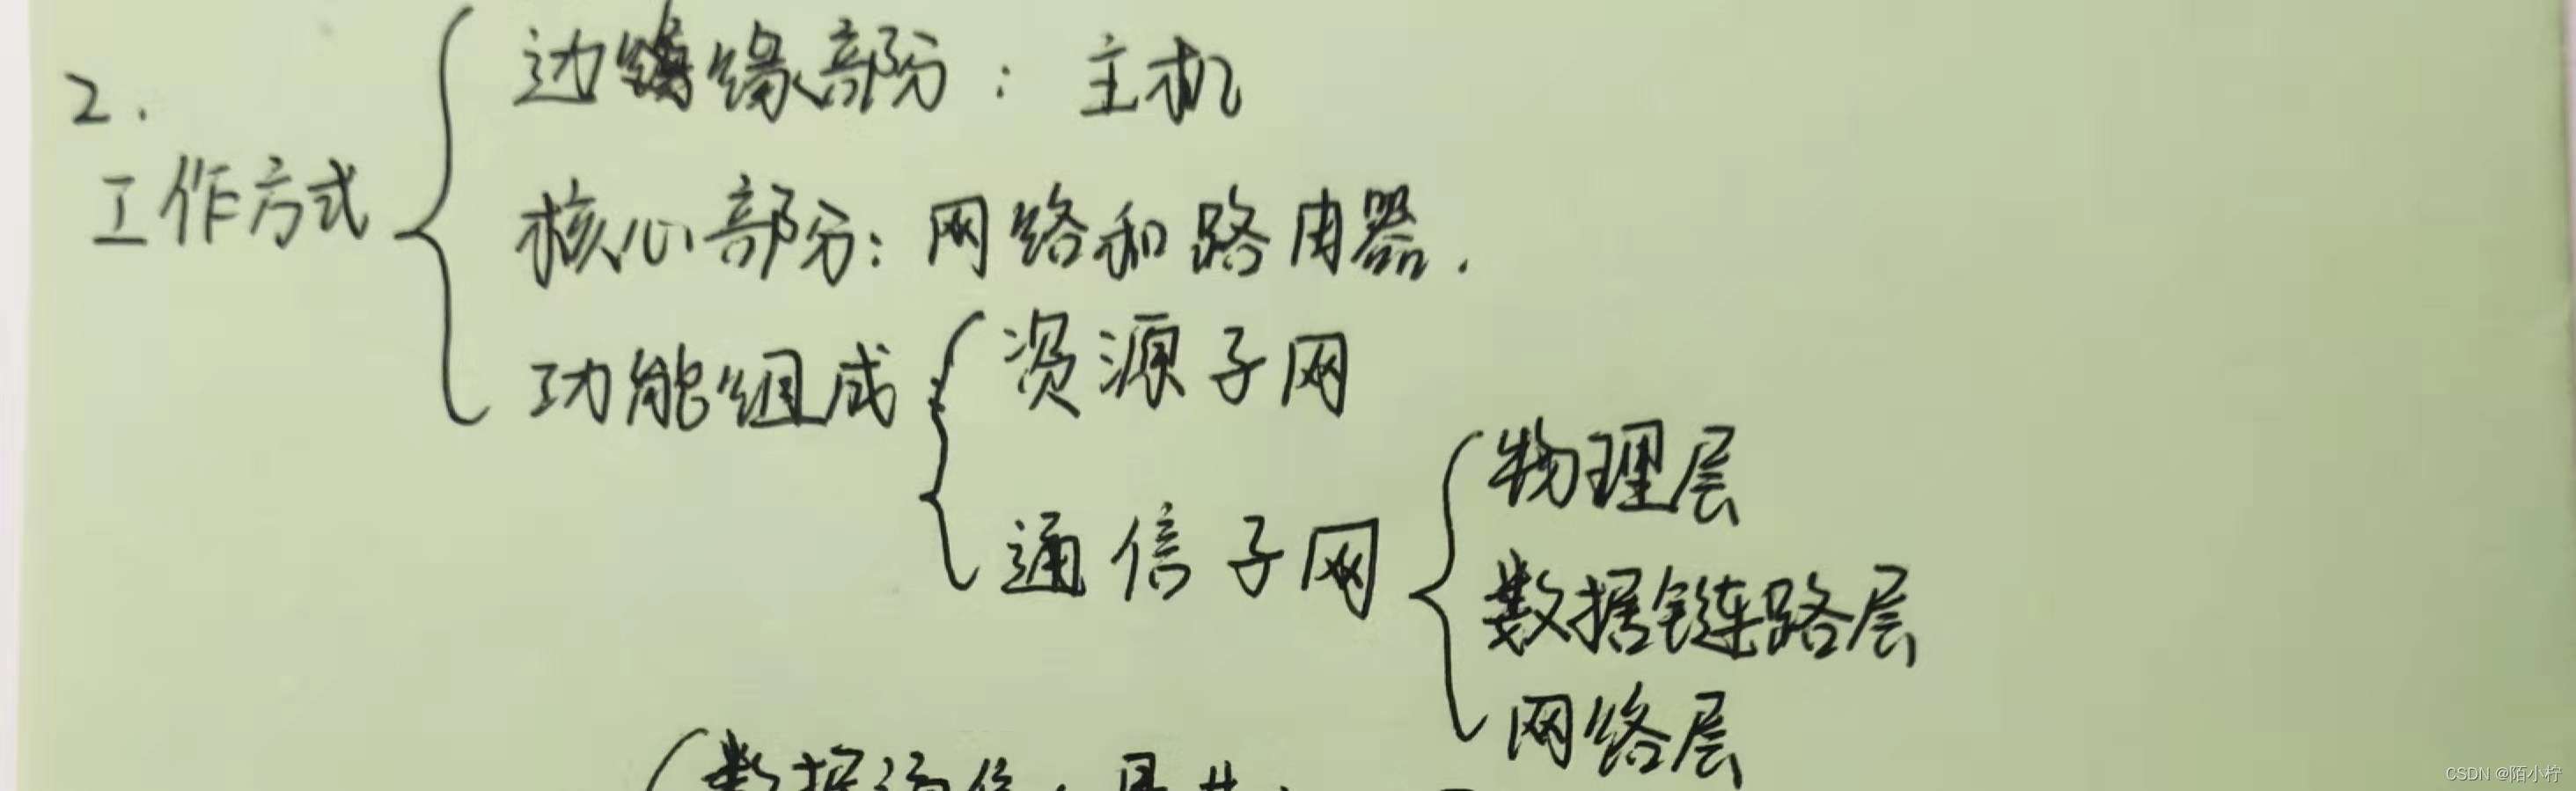 2.
工作方式
边缘部分：主机
核心部分：网络和路由器.
功能组成
资源子网
通信子网
物理层
数据链路层
网络层
数据通信
CSDN @陌小柠